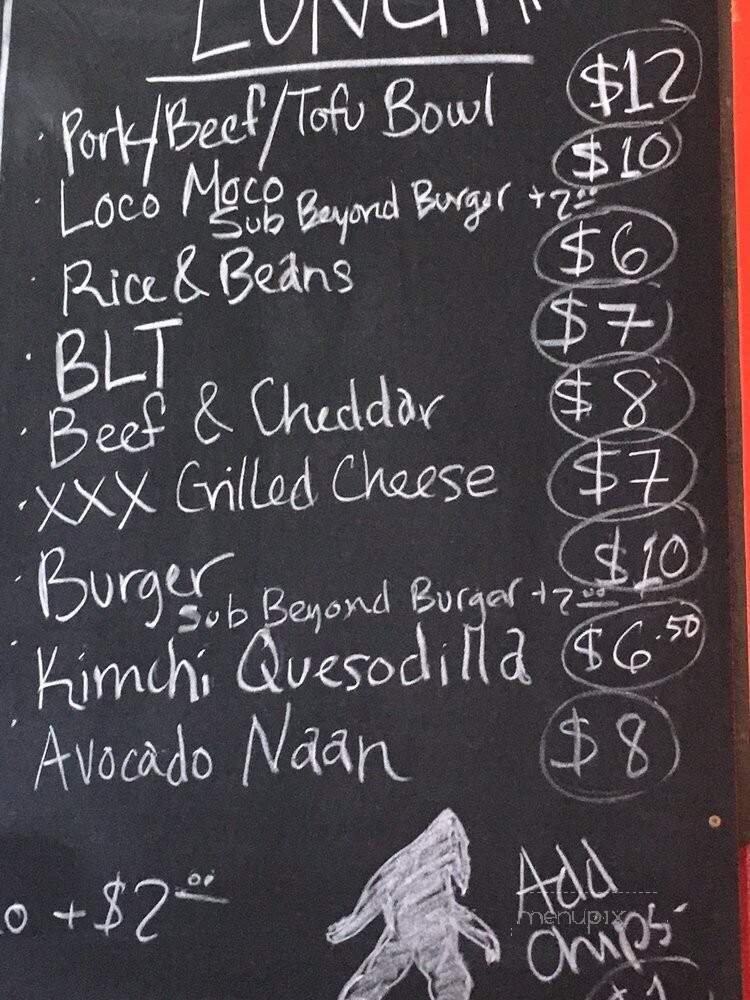 LUNCH
Pork/Beef/Tofu Bowl $12
Loco Moco $10
Sub Beyond Burger +2.00
Rice & Beans $6
BLT $7
Beef & Cheddar $8
XXX Grilled Cheese $7
Burger $10
Sub Beyond Burger +2.00
Kimchi Quesodilla $6.50
Avocado Naan $8
+$2.00
Add
menupix
Chips